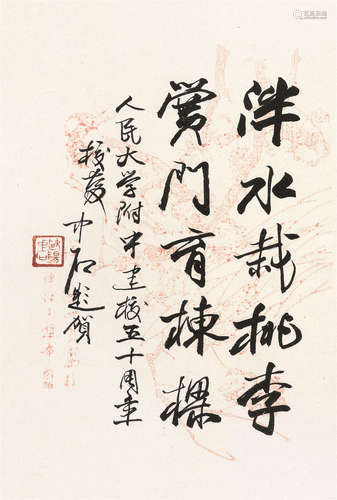 泮水栽桃李
黉门育棟樑
人民大学附中建校五十周年
校慶 中石题贺